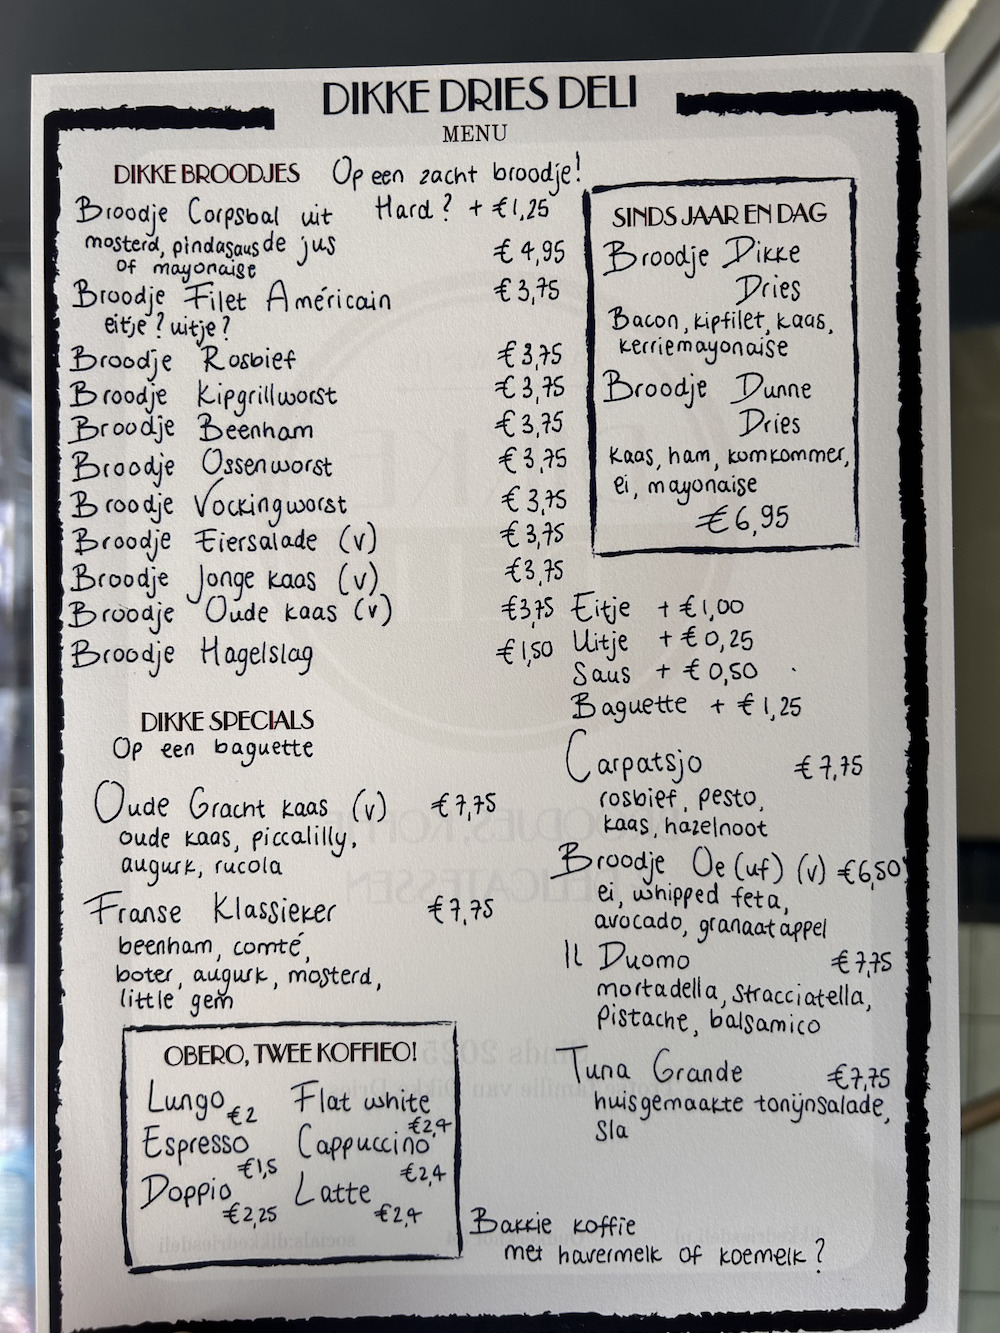 DIKKE DRIES DELI
MENU
DIKKE BROODJES Op een zacht broodje!
Hard? + €1,25
Broodje Corpsbal uit de jus € 4,95
mosterd, pindasaus
of mayonaise
Broodje Filet Américain €3,75
eitje? uitje?
Broodje Rosbief €3,75
Broodje Kipgrillworst €3,75
Broodje Beenham €3,75
Broodje Ossenworst €3,75
Broodje Vockingworst €3,75
Broodje Eiersalade (v) €3,75
Broodje Jonge kaas (v) €3,75
Broodje Oude kaas (v) €3,75
Broodje Hagelslag €1,50
SINDS JAAR EN DAG
Broodje Dikke
Dries
Bacon, kipfilet, kaas,
kerriemayonaise
Broodje Dunne
Dries
kaas, ham, komkommer,
ei, mayonaise
€6,95
Eitje + €1,00
Uitje + €0,25
Saus + €0,50
Baguette + €1,25
DIKKE SPECIALS
Op een baguette
Oude Gracht kaas (v) €7,75
oude kaas, piccalilly,
augurk, rucola
Franse Klassieker €7,75
beenham, comté,
boter, augurk, mosterd,
little gem
Carpatsjo €7,75
rosbief, pesto,
kaas, hazelnoot
Broodje Oe(uf) (v) €6,50
ei, whipped feta,
avocado, granaatappel
Il Duomo €7,75
mortadella, stracciatella,
pistache, balsamico
Tuna Grande €7,75
huisgemaakte tonijnsalade,
sla
OBERO, TWEE KOFFIEO!
Lungo €2
Espresso €1,5
Doppio €2,25
Flat white €2,4
Cappuccino €2,4
Latte €2,4
Bakkie koffie
met havermelk of koemelk?